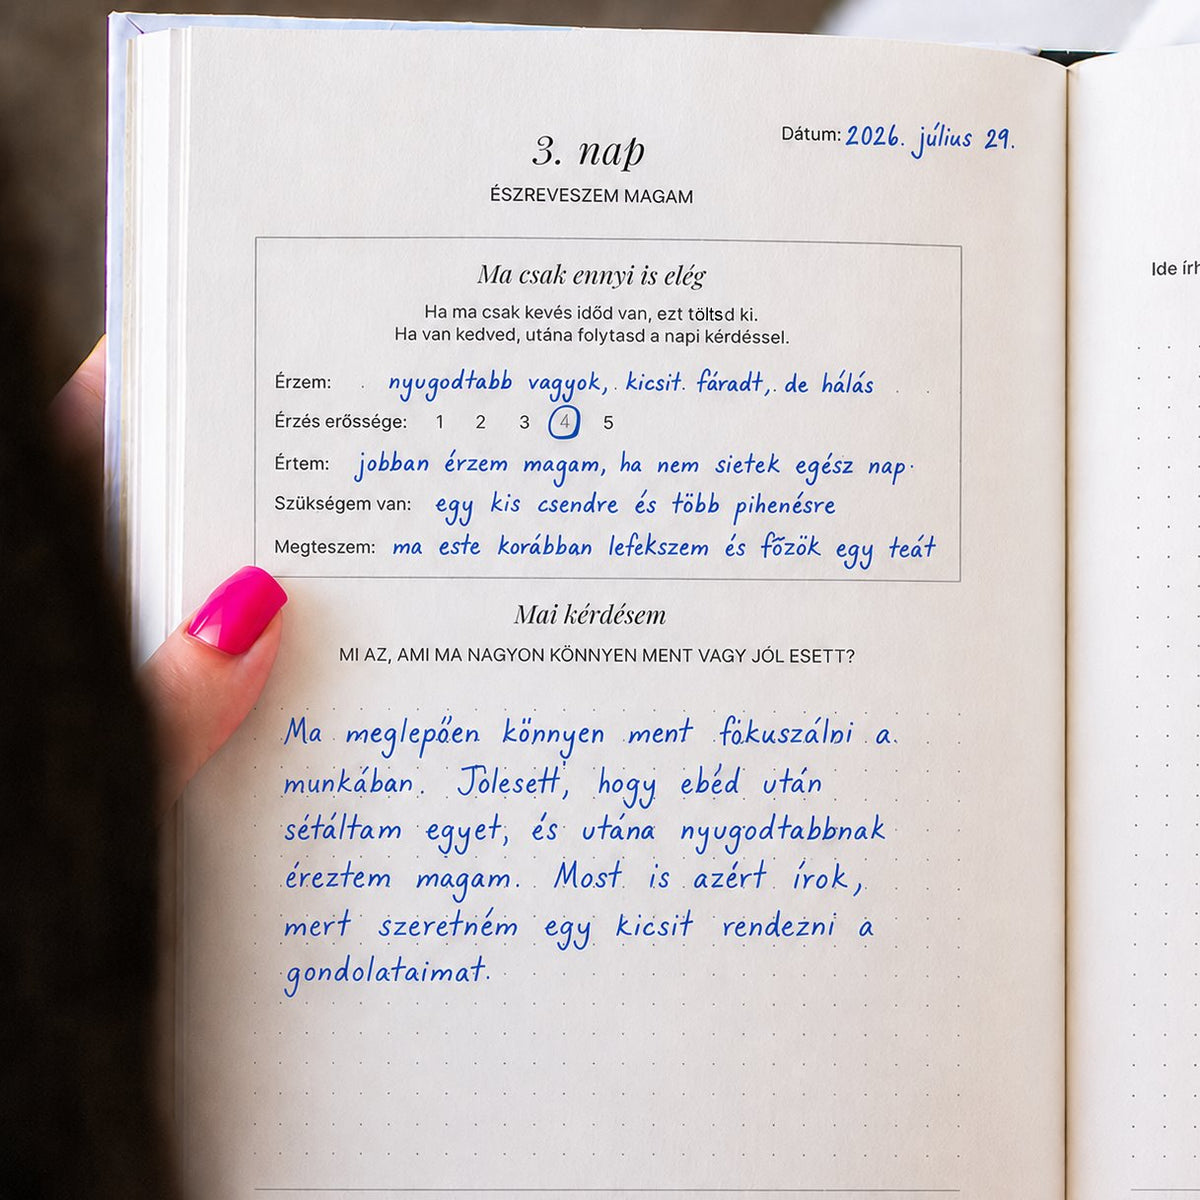 Dátum: 2026. július 29.
3. nap
ÉSZREVESZEM MAGAM
Ma csak ennyi is elég
Ha ma csak kevés időd van, ezt töltsd ki.
Ha van kedved, utána folytasd a napi kérdéssel.
Érzem: nyugodtabb vagyok, kicsit fáradt, de hálás
Érzés erőssége: 1 2 3 4 5
Értem: jobban érzem magam, ha nem sietek egész nap.
Szükségem van: egy kis csendre és több pihenésre
Megteszem: ma este korábban lefekszem és főzök egy teát
Mai kérdésem
MI AZ, AMI MA NAGYON KÖNNYEN MENT VAGY JÓL ESETT?
Ma meglepően könnyen ment fókuszálni a
munkában. Jólesett, hogy ebéd után
sétáltam egyet, és utána nyugodtabbnak
éreztem magam. Most is azért írok,
mert szeretném egy kicsit rendezni a
gondolataimat.
Ide